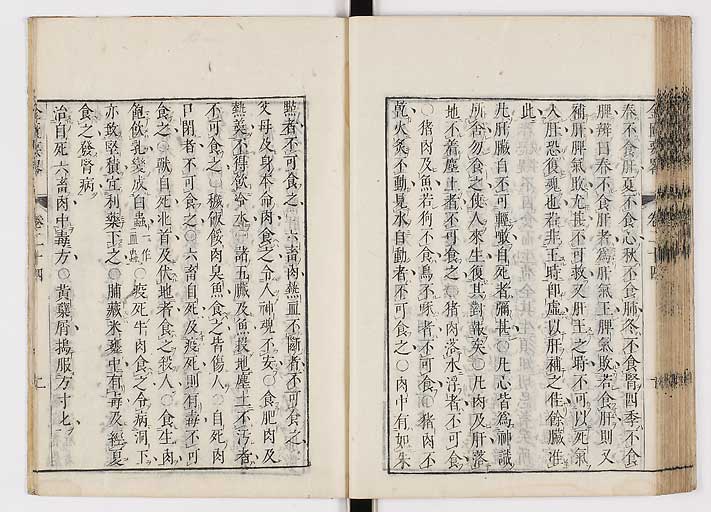 春不食肝夏不食心秋不食肺冬不食腎四季不食
脾辨曰春不食肝者為肝氣王脾氣敗若食肝則又
補肝脾氣敗尤甚不可救又肝王之時不可以死氣
入肝恐傷魂也若非王時即虛以肝補之佳餘臟准
此
凡肝臟自不可輕噉自死者彌甚○凡心皆為神識
所舍勿食之使人來生復其對報矣○凡肉及肝落
地不著塵土者不可食之○猪肉落水浮者不可食
○猪肉及魚若狗不食鳥不啄者不可食○猪肉不
乾火炙不動見水自動者不可食之○肉中有如朱
點者不可食之○六畜肉熱血不斷者不可食之○
父母及身本命肉食之令人神魂不安○食肥肉及
熱羹不得飲冷水○諸五臟及魚投地塵土不汚者
不可食之○穢飯餒肉臭魚食之皆傷人○自死肉
口閉者不可食之○六畜自死皆疫死則有毒不可
食之○獸自死北首及伏地者食之殺人○食生肉
飽飲乳變成白蟲一作血蠱○疫死牛肉食之令病洞下
亦致堅積宜利藥下之○脯藏米甕中有毒及經夏
食之發腎病
治自死六畜肉中毒方○黃蘗屑搗服方寸匕
卷二十四
九